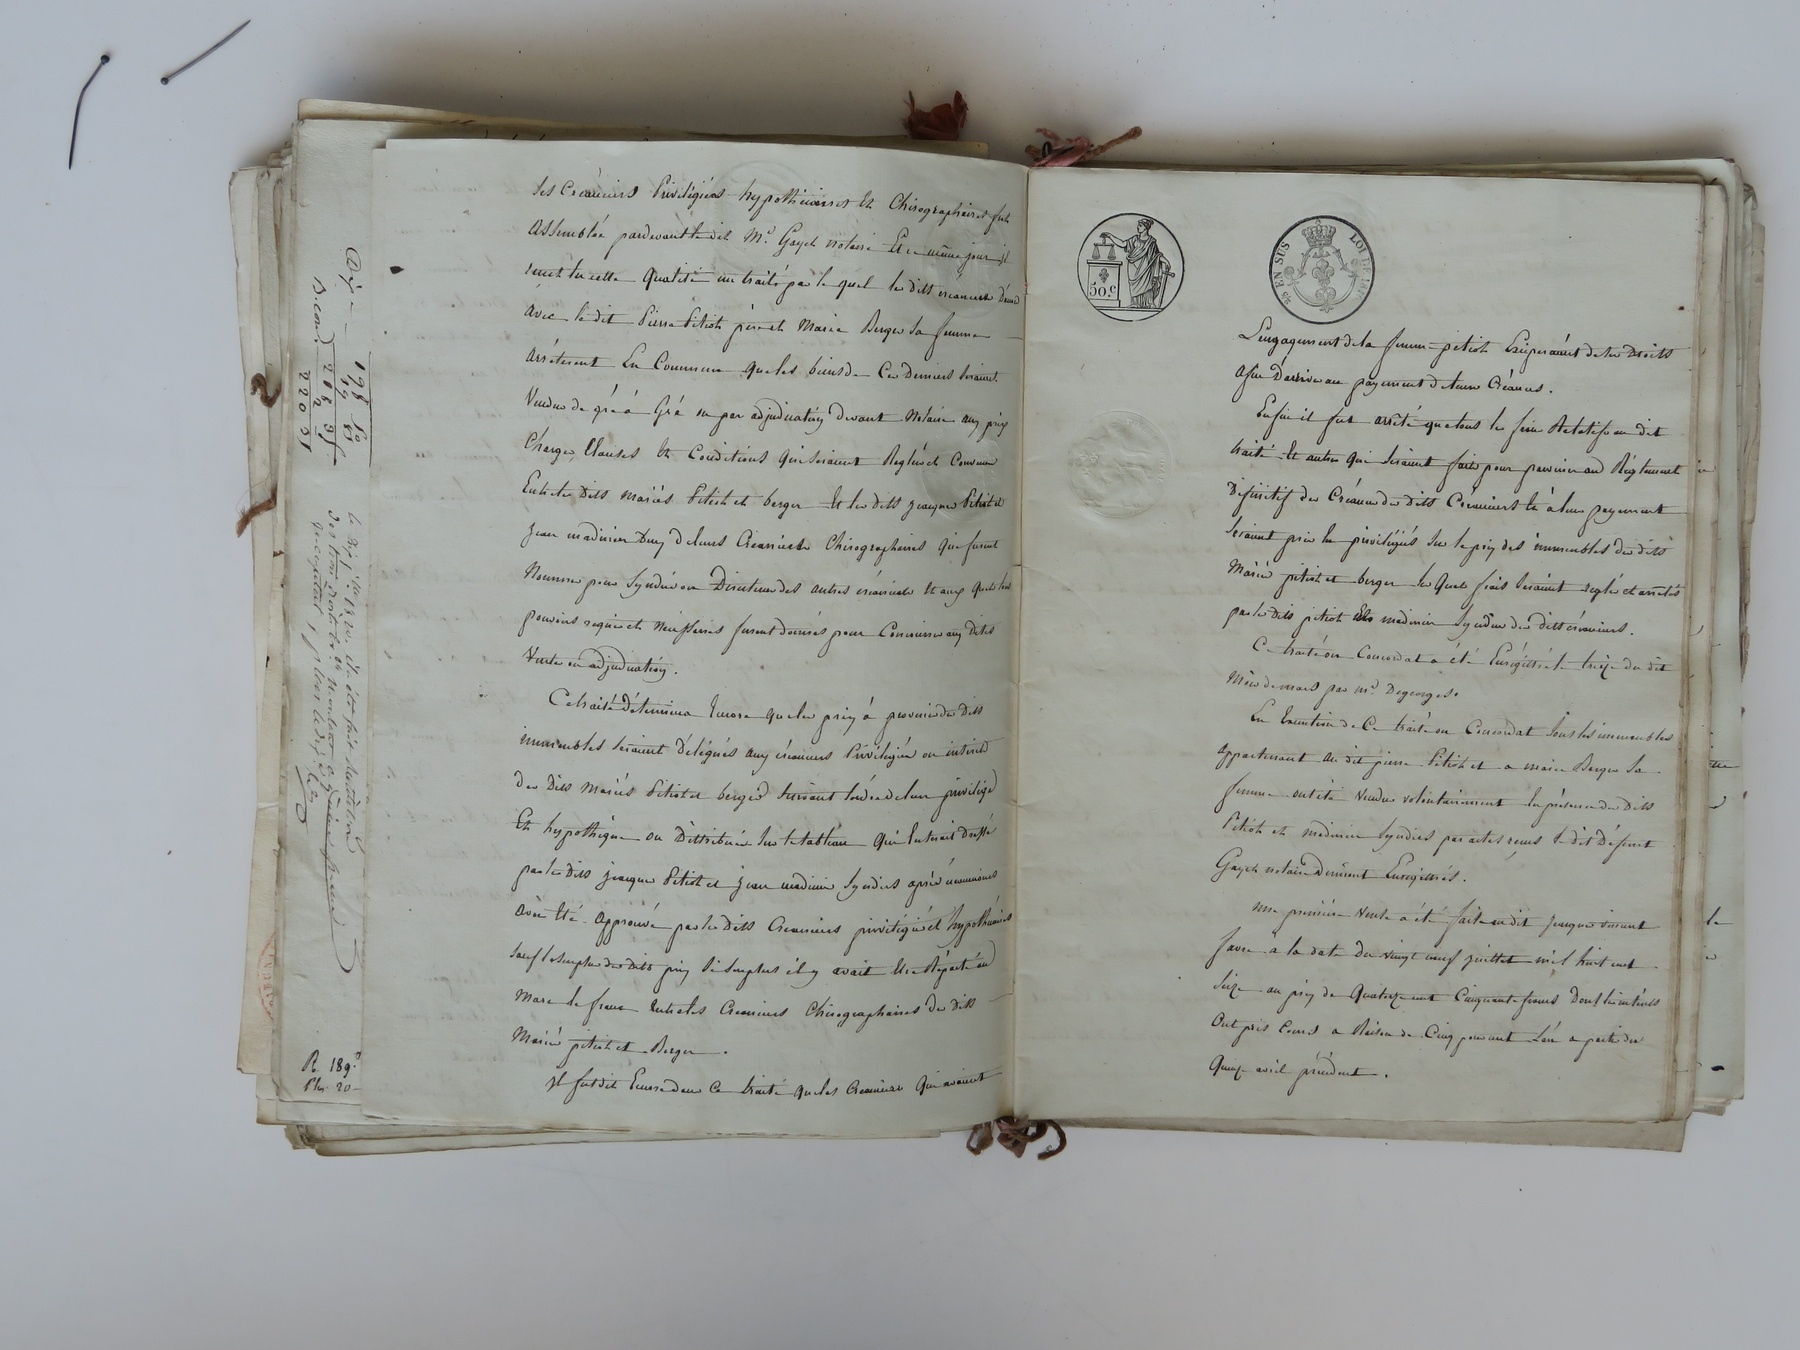 Ses Créanciers Privilégiés hypothécaires Et Chirographaires fut
Assemblée pardevant le dit Me. Gayet notaire Et ce même jour il
reçut en cette Qualité un traité par le quel les dits créanciers
avec le dit Pierre Petiot père et Marie Berger sa femme
arrêterent En Commun que les biens de Ces Derniers seraient
Vendus de gré à Gré ou par adjudication devant Notaire aux prix
Charges, Clauses Et Conditions qui seraient Réglés et Convenus
Entre les Dits mariés Petiot et berger Et les dits jacques Petiot et
jean madinier Deux de leurs Créanciers Chirographaires qui furent
Nommés pour Syndics ou Directeurs des autres créanciers Et aux quels tous
pouvoirs requis et Nécessaires furent donnés pour Concourir aux Dites
Ventes ou adjudication.
Ce traité détermina Encore que les prix à provenir des Dits
immeubles seraient délégués aux créanciers Privilégiés ou inscrits
Des Dits Mariés Petiot et berger suivant l'ordre de leur privilège
Et hypothèque ou Distribués sur le tableau Qui En serait Dressé
par les Dits jacques Petiot et jean madinier Syndics après néanmoins
avoir été approuvé par les Dits Créanciers privilégiés et hypothécaires
sauf le surplus des Dits prix si surplus il y avait Etre Réparti au
Marc le franc Entre les Créanciers Chirographaires des Dits
Mariés petiot et Berger.
Il fut dit Encore dans Ce traité que les Créanciers Qui avaient
198 50
19 85
218 35
2
220 35
R. 189.
20
50.c
EN SUS
LOI DE 1816
L'engagement de la femme petiot
afin D'arriver au payement de leurs Créances.
Enfin il fut arrêté que tous les frais Relatifs au dit
traité Et autres Qui Seraient faits pour parvenir au Réglement
Définitif des Créances des Dits Créanciers Et à leur payement
Seraient pris par privilège sur le prix des immeubles des dits
Mariés petiot et berger les Quels frais Seraient réglés et arrêtés
par les Dits petiot Et madinier Syndics des dits créanciers.
Ce traité ou Concordat a été Enrégistré le treize du dit
Mois de mars par mr. Degeorges.
En Exécution de Ce traité ou Concordat tous les immeubles
appartenant au dit pierre Petiot et a marie Berger sa
femme ont été Vendus volontairement En présence des Dits
Petiot et madinier Syndics par actes reçus le dit Défunt
Gayet notaire Dûment Enrégistrés.
Une première Vente a été faite au dit Jacques vincent
favre à la date Du vingt neuf juillet mil huit cent
Seize au prix de Quatorze cent Cinquante francs Dont les intérêts
Ont pris Cours a Raison de Cinq pour cent L'an a partir du
Quinze avril précédent.